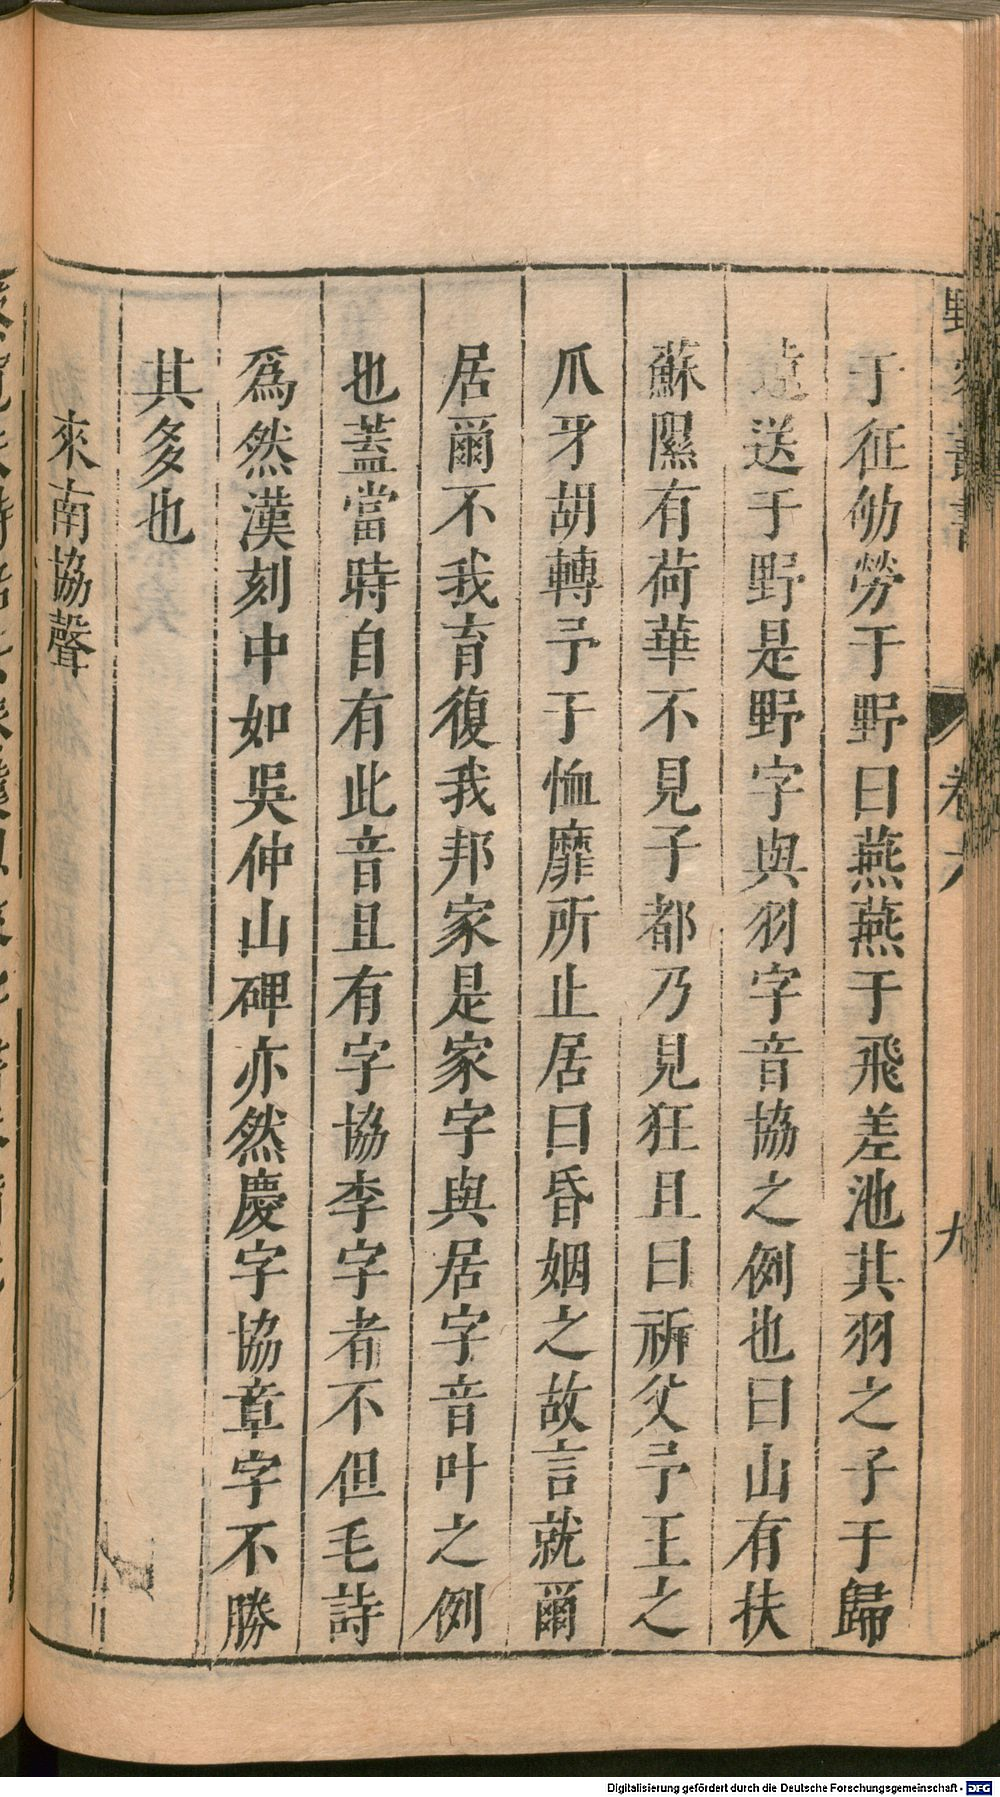 于征劬勞于野曰燕燕于飛差池其羽之子于歸
遠送于野是野字與羽字音協之例也曰山有扶
蘇隰有荷華不見子都乃見狂且曰祈父予王之
爪牙胡轉予于恤靡所止居曰昏姻之故言就爾
居爾不我育復我邦家是家字與居字音叶之例
也蓋當時自有此音且有字協李字者不但毛詩
爲然漢刻中如吳仲山碑亦然慶字協章字不勝
其多也
來南協聲
卷六
九
Digitalisierung gefördert durch die Deutsche Forschungsgemeinschaft - DFG